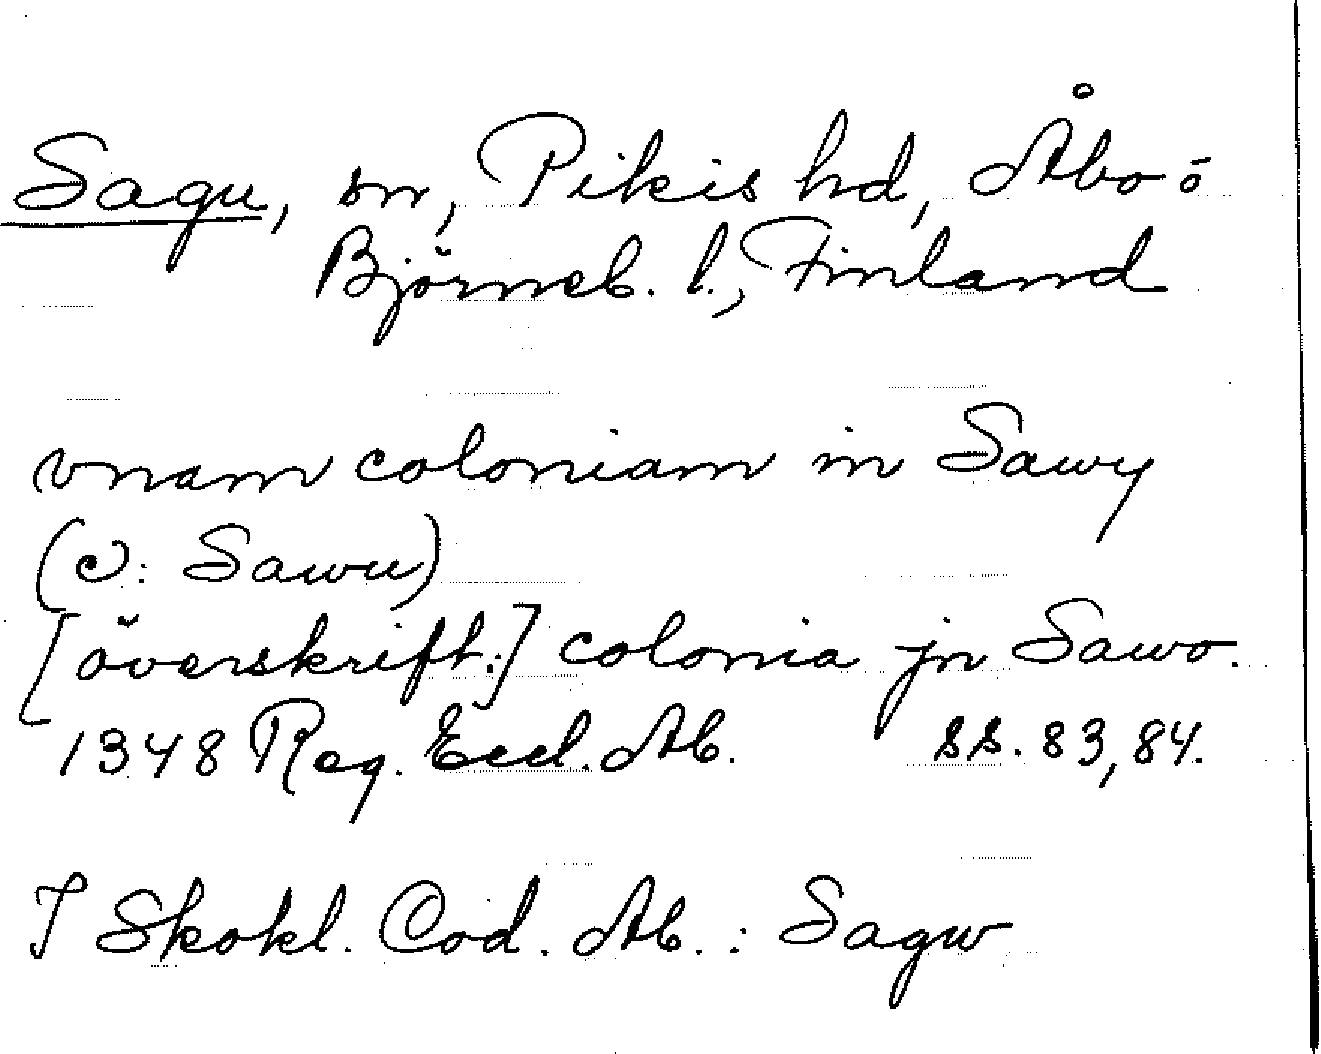 Sagu, sn, Pikis hd, Åbo o
Björneb. l., Finland
vnam coloniam in Sawy
(ɔ: Sawu)
[överskrift:] colonia jn Sawo.
1348 Reg. Eccl. Ab. ss. 83, 84.
I Skokl. Cod. Ab.: Sagw